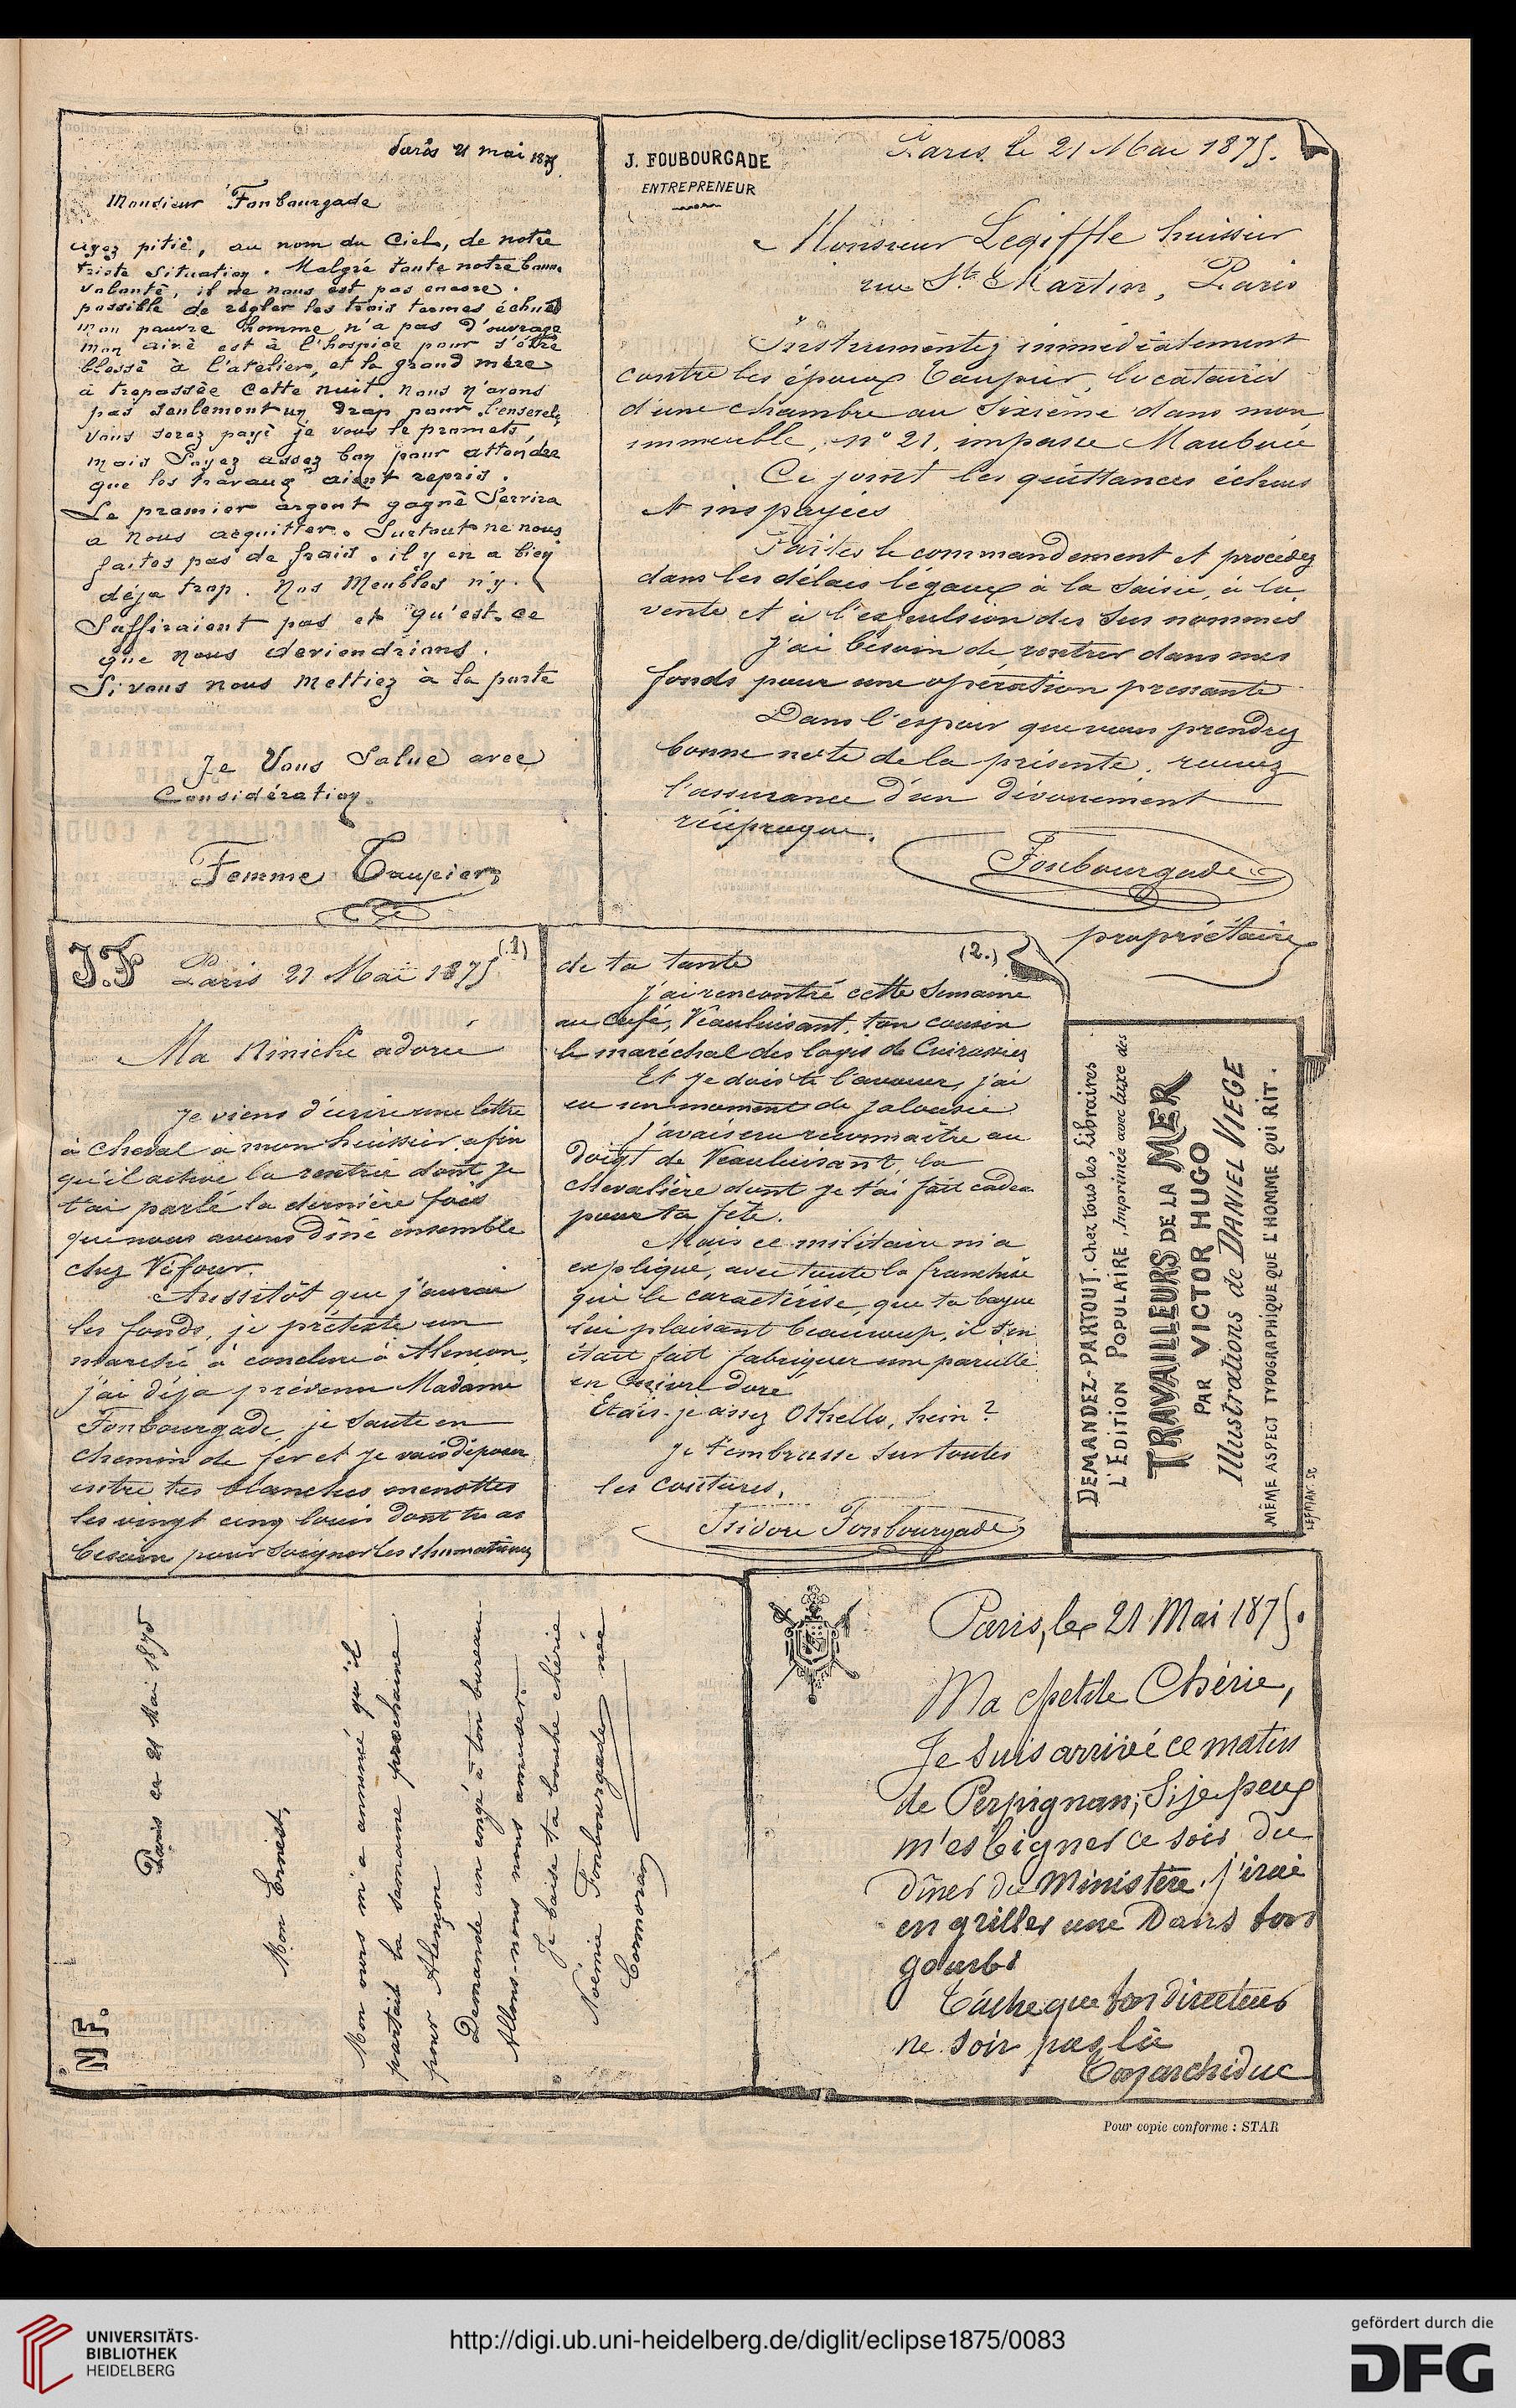 Paris 21 mai 1875
Monsieur Fonbourgade
ayez pitié, au nom du Ciel, de notre
triste Situation. Malgré toute notre bonne
volonté, il ne nous est pas encore
possible de régler les trois termes échus
mon pauvre homme n'a pas d'ouvrage
mon aîné est à l'hospice pour s'être
blessé à l'atelier, et la grand mère
à trepassée Cette nuit. nous n'avons
pas seulement un drap pour l'enserelir
Vous serez payé je vous le promets
mais Soyez assez bon pour attendre
que les travaux aient repris.
Le premier argent gagné Servira
a nous acquitter. Surtout ne nous
faites pas de frais. il y en a bien
déja trop. Nos Meubles n'y
Suffiraient pas et qu'est-ce
que nous deviendrions.
Si vous nous mettiez à la porte
Je Vous Salue avec
Considération
Femme Taupier
J. FOUBOURGADE
ENTREPRENEUR
Paris le 21 Mai 1875.
Monsieur Legiffle huissier
rue St. Martin, Paris
Instrumentez immédiatement
contre les époux Taupier, locataires
d'une chambre au Sixième dans mon
immeuble, n° 21, impasse Maubuée
Ci joint les quittances échues
et inspayées
Faites le commandement et procédez
dans les délais légaux à la Saisie, à la
vente et à l'expulsion des Sus nommés
J'ai besoin de rentrer dans mes
fonds pour une opération pressante
Dans l'espoir que vous prendrez
bonne note de la présente, recevez
l'assurance d'un dévouement
réciproque.
Fonbourgade
propriétaire
J.F
(1)
Paris 21 Mai 1875
Ma Niniche adorée
Je viens d'écrire une lettre
à cheval à mon huissier afin
qu'il active la rentrée dont je
t'ai parlé la dernière fois
que nous avons dîné ensemble
chez Véfour.
Aussitôt que j'aurai
les fonds, je prétexte un
marché à conclure à Alençon,
j'ai déja prévenu Madame
Fonbourgade, je Saute en
chemin de fer et je vais déposer
entre tes blanches menottes
les vingt cinq louis dont tu as
besoin pour Soigner les rhumatismes
(2.)
de ta tante
J'ai rencontré cette Semaine
au Café, Veauluisant, ton cousin
le maréchal des logis de Cuirassiers
Et je dois te l'avouer, j'ai
eu un moment de jalousie
J'avais cru reconnaître au
doigt de Veauluisant, la
chevalière dont je t'ai fait cadeau
pour ta fête.
Mais ce militaire m'a
expliqué, avec toute la franchise
qui le caractérise, que ta bague
lui plaisant beaucoup, il s'en
était fait fabriquer une pareille
en Cuivre doré
Etais-je assez Othello, hein?
Je t'embrasse Sur toutes
les coutures.
Isidore Fonbourgade
DEMANDEZ-PARTOUT, chez tous les Libraires
L'EDITION POPULAIRE, Imprimée avec luxe des
TRAVAILLEURS DE LA MER
PAR VICTOR HUGO
Illustrations de DANIEL VIEGE
MÊME ASPECT TYPOGRAPHIQUE QUE L'HOMME QUI RIT.
LEFMAN. SC
N F.
Paris ce 21 Mai 1875
Mon Ernest,
Mon ours m'a annoncé qu'il
partait la semaine prochaine
pour Alençon
Demande un congé à ton bureau.
Allons-nous nous amuser
Je baise ta bouche chérie
Noémie Fonbourgade née
Cormoran
Paris, le 21 Mai 1875.
Ma petite Chérie,
Je suis arrivé ce matin
de Perpignan; Si je peux
m'esbigner ce soir du
dîner du Ministère. j'irai
en griller une Dans ton
gourbi
Tâche que ton directeur
ne soir pas là
Ton archiduc
Pour copie conforme : STAR
UNIVERSITÄTS-
BIBLIOTHEK
HEIDELBERG
http://digi.ub.uni-heidelberg.de/diglit/eclipse1875/0083
gefördert durch die
DFG